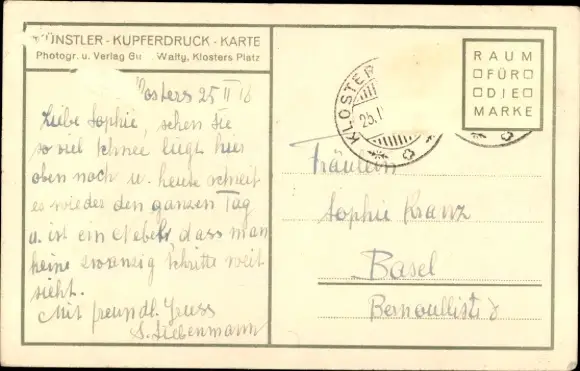 KÜNSTLER - KUPFERDRUCK - KARTE
Photogr. u. Verlag Gu Walty, Klosters Platz
Klosters 25 II 16
Liebe Sophie, sehen Sie
so viel Schnee liegt hier
oben noch u. heute schneit
es wieder den ganzen Tag
u. ist ein Nebel, dass man
keine zwanzig Schritte weit
sieht.
Mit freundl. Gruss
S. Liebenmann
KLOSTER
25.I
RAUM
FÜR
DIE
MARKE
Fräulein
Sophie Kranz
Basel
Bernoullistr